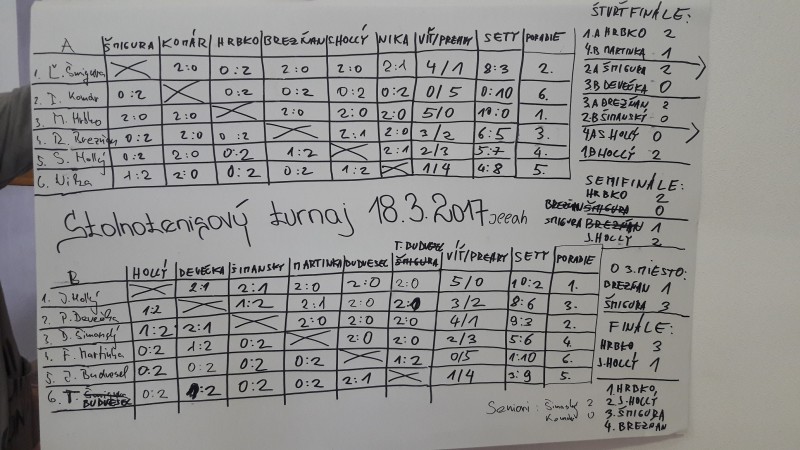 A ŠMIGURA KOMÁR HRBKO BREZŇAN S.HOLLÝ NIKA VÍŤ/PREHRY SETY PORADIE
1. Ľ. Šmigura 2:0 0:2 2:0 2:0 2:1 4/1 8:3 2.
2. Komár 0:2 0:2 0:2 0:2 0:2 0/5 0:10 6.
3. M. Hrbko 2:0 2:0 2:0 2:0 2:0 5/0 10:0 1.
4. R. Brezňan 0:2 2:0 0:2 2:1 2:0 3/2 6:5 3.
5. S. Hollý 0:2 2:0 0:2 1:2 2:1 2/3 5:7 4.
6. Nika 1:2 2:0 0:2 0:2 1:2 1/4 4:8 5.
Stolnotenisový turnaj 18.3.2017 Jeeah
B HOLLÝ DEVEČKA ŠIMANSKÝ MARTINKA BUDVESEL T. BUDVESEL ŠMIGURA VÍŤ/PREHRY SETY PORADIE
1. J. Hollý 2:1 2:1 2:0 2:0 2:0 5/0 10:2 1.
2. P. Devečka 1:2 1:2 2:1 2:0 2:0 3/2 8:6 3.
3. D. Šimanský 1:2 2:1 2:0 2:0 2:0 4/1 9:3 2.
4. F. Martinka 0:2 1:2 0:2 2:0 2:0 2/3 5:6 4.
5. J. Budvesel 0:2 0:2 0:2 0:2 1:2 0/5 1:10 6.
6. T. BUDVESEL 0:2 0:2 0:2 0:2 2:1 1/4 5.
Seniori: Šimanský 2
Komár 0
ŠTVRŤFINÁLE:
1.A HRBKO 2
4.B MARTINKA 1
2A ŠMIGURA 2
3B DEVEČKA 0
3A BREZŇAN 2
2.B ŠIMANSKÝ 0
4A S.HOLLÝ 0
1B HOLLÝ 2
SEMIFINÁLE:
HRBKO 2
BREZŇAN ŠMIGURA 0
ŠMIGURA BREZŇAN 1
S.HOLLÝ 2
O 3.MIESTO:
BREZŇAN 1
ŠMIGURA 3
FINÁLE:
HRBKO 3
S.HOLLÝ 1
1. HRBKO
2. S.HOLLÝ
3. ŠMIGURA
4. BREZŇAN